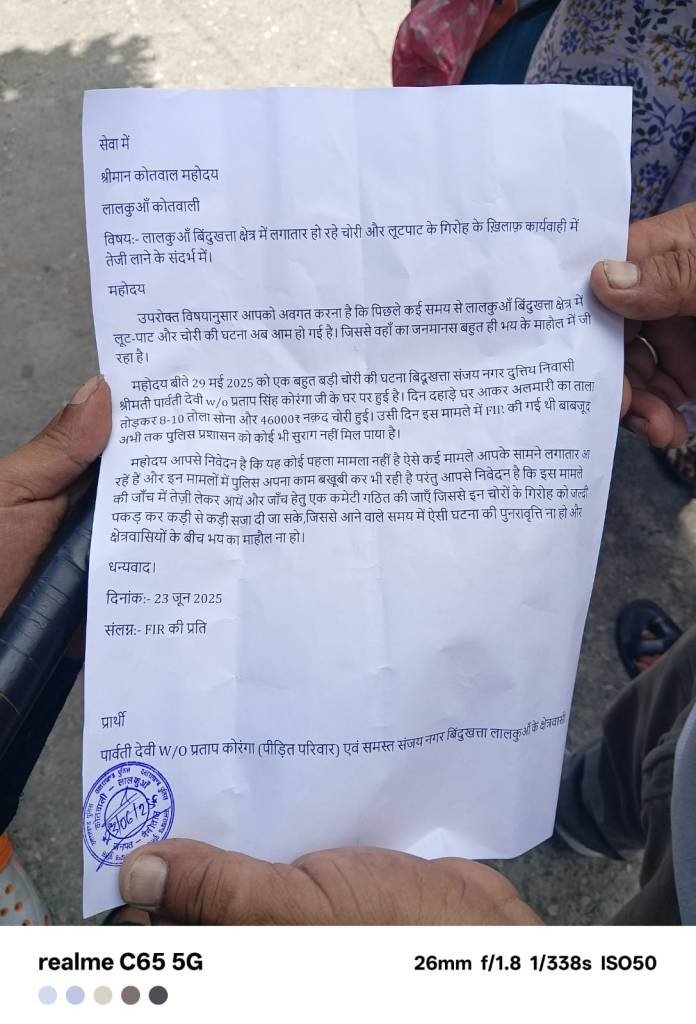 सेवा में
श्रीमान कोतवाल महोदय
लालकुआँ कोतवाली
विषय:- लालकुआँ बिंदुखत्ता क्षेत्र में लगातार हो रहे चोरी और लूटपाट के गिरोह के ख़िलाफ़ कार्यवाही में
तेजी लाने के संदर्भ में।
महोदय
उपरोक्त विषयानुसार आपको अवगत करना है कि पिछले कई समय से लालकुआँ बिंदुखत्ता क्षेत्र में
लूट-पाट और चोरी की घटना अब आम हो गई है। जिससे वहाँ का जनमानस बहुत ही भय के माहौल में जी
रहा है।
महोदय बीते 29 मई 2025 को एक बहुत बड़ी चोरी की घटना बिंदूखत्ता संजय नगर दुत्तिय निवासी
श्रीमती पार्वती देवी w/o प्रताप सिंह कोरंगा जी के घर पर हुई है। दिन दहाड़े घर आकर अलमारी का ताला
तोड़कर 8-10 तोला सोना और 46000₹ नक़द चोरी हुई। उसी दिन इस मामले में FIR की गई थी बाबजूद
अभी तक पुलिस प्रशासन को कोई भी सुराग नहीं मिल पाया है।
महोदय आपसे निवेदन है कि यह कोई पहला मामला नहीं है ऐसे कई मामले आपके सामने लगातार आ
रहें हैं और इन मामलों में पुलिस अपना काम बखूबी कर भी रही है परंतु आपसे निवेदन है कि इस मामले
की जाँच में तेज़ी लेकर आयें और जाँच हेतु एक कमेटी गठित की जाएँ जिससे इन चोरों के गिरोह को जल्दी
पकड़ कर कड़ी से कड़ी सजा दी जा सके,जिससे आने वाले समय में ऐसी घटना की पुनरावृत्ति ना हो और
क्षेत्रवासियों के बीच भय का माहौल ना हो।
धन्यवाद।
दिनांक:- 23 जून 2025
संलग्न:- FIR की प्रति
प्रार्थी
पार्वती देवी W/O प्रताप कोरंगा (पीड़ित परिवार) एवं समस्त संजय नगर बिंदुखत्ता लालकुआँ के क्षेत्रवासी
कोतवाली - लालकुआँ
जनपद - नैनीताल
realme C65 5G
26mm f/1.8 1/338s ISO50